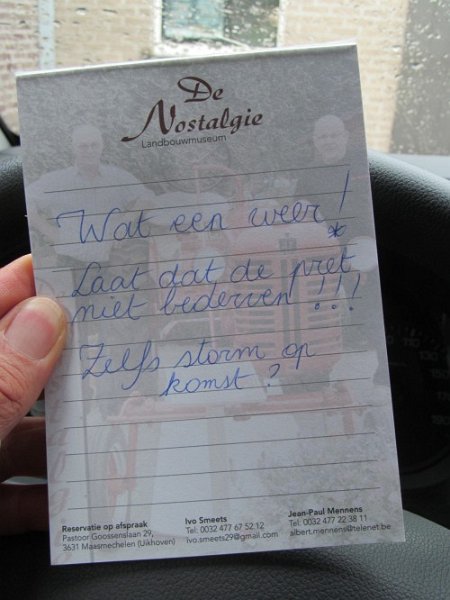 De
Nostalgie
Landbouwmuseum
Wat een weer!
Laat dat de pret
niet bederven!!!
Zelfs storm op
komst?
Reservatie op afspraak
Pastoor Goossenslaan 29,
3631 Maasmechelen (Uikhoven)
Ivo Smeets
Tel: 0032 477 67 52 12
ivo.smeets29@gmail.com
Jean-Paul Mennens
Tel: 0032 477 22 38 11
albert.mennens@telenet.be